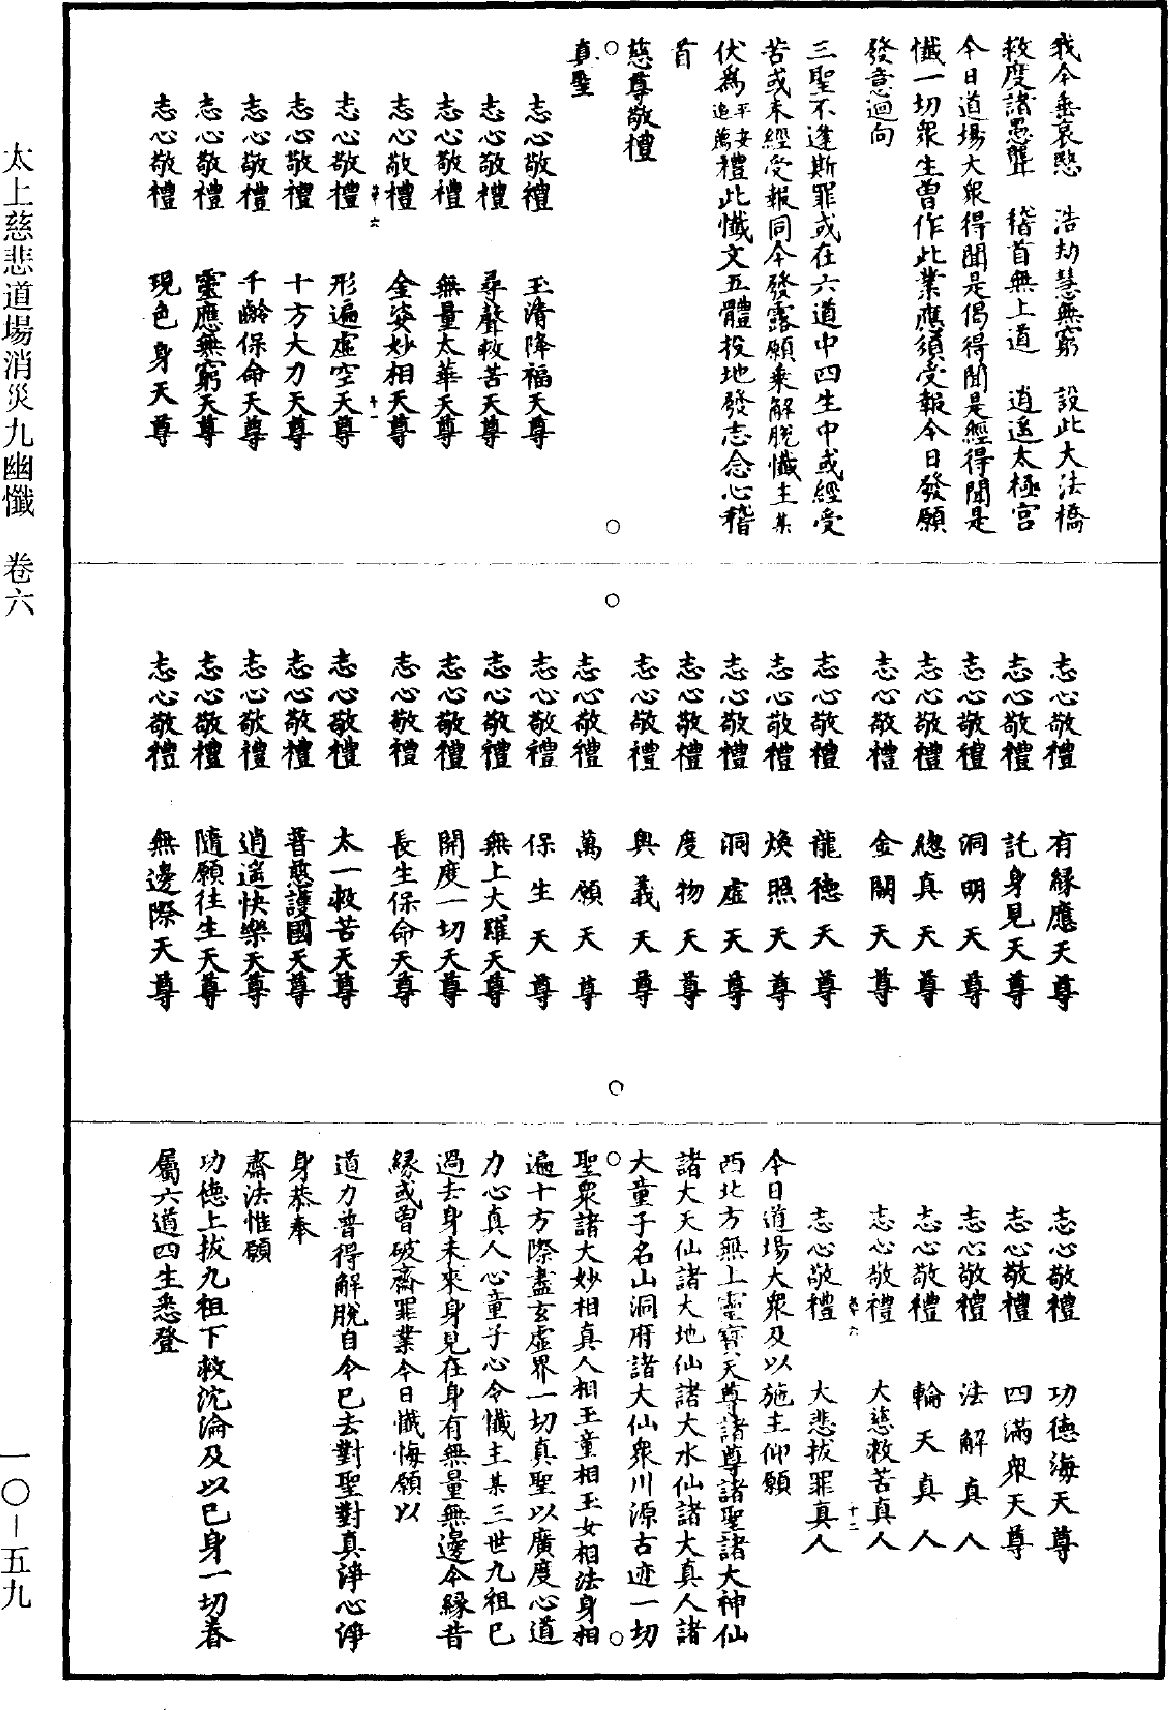 我今垂哀愍　浩劫慧無窮　設此大法橋
救度諸愚聾　稽首無上道　逍遙太極宮
今日道場大衆得聞是偈得聞是經得聞是
懺一切衆生曾作此業應須受報今日發願
發意迴向
三聖不逢斯罪或在六道中四生中或經受
苦或未經受報同今發露願乘解脫懺主某
伏爲平安追薦禮此懺文五體投地發志念心稽
首
慈尊敬禮
真聖
志心敬禮　玉清降福天尊
志心敬禮　尋聲救苦天尊
志心敬禮　無量太華天尊
志心敬禮　金姿妙相天尊
卷六　十一
志心敬禮　形遍虛空天尊
志心敬禮　十方大力天尊
志心敬禮　千齡保命天尊
志心敬禮　靈應無窮天尊
志心敬禮　現色身天尊
志心敬禮　有緣應天尊
志心敬禮　託身見天尊
志心敬禮　洞明天尊
志心敬禮　總真天尊
志心敬禮　金闕天尊
志心敬禮　龍德天尊
志心敬禮　煥照天尊
志心敬禮　洞虛天尊
志心敬禮　度物天尊
志心敬禮　興義天尊
志心敬禮　萬願天尊
志心敬禮　保生天尊
志心敬禮　無上大羅天尊
志心敬禮　開度一切天尊
志心敬禮　長生保命天尊
志心敬禮　太一救苦天尊
志心敬禮　普慈護國天尊
志心敬禮　逍遙快樂天尊
志心敬禮　隨願往生天尊
志心敬禮　無邊際天尊
志心敬禮　功德海天尊
志心敬禮　四滿衆天尊
志心敬禮　法解真人
志心敬禮　輪天真人
志心敬禮　大慈救苦真人
卷六　十二
志心敬禮　大悲拔罪真人
今日道場大衆及以施主仰願
西北方無上靈寶天尊諸尊諸聖諸大神仙
諸大天仙諸大地仙諸大水仙諸大真人諸
大童子名山洞府諸大仙衆川源古迹一切
聖衆諸大妙相真人相玉童相玉女相法身相
遍十方際盡玄虛界一切真聖以廣度心道
力心真人心童子心令懺主某三世九祖巳
過去身未來身見在身有無量無邊今緣昔
緣或曾破齋罪業今日懺悔願以
道力普得解脫自今巳去對聖對真淨心淨
身恭奉
齋法惟願
功德上拔九祖下救沈淪及以巳身一切眷
屬六道四生悉登
太上慈悲道場消災九幽懺　卷六
一〇－五九